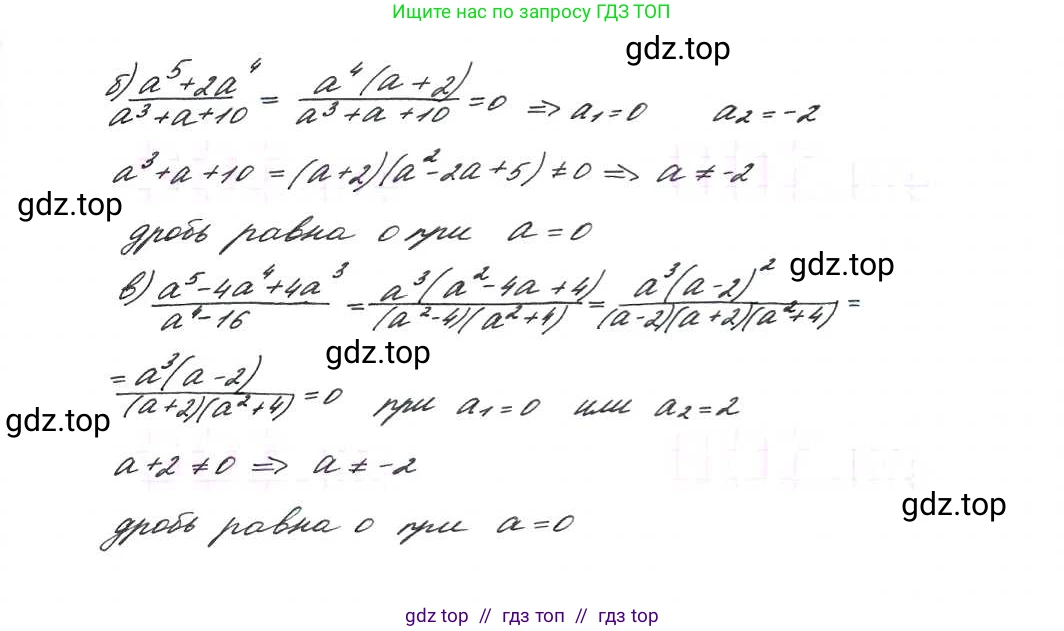 Ищите нас по запросу ГДЗ ТОП
gdz.top
б) (a⁵+2a⁴)/(a³+a+10) = (a⁴(a+2))/(a³+a+10) = 0 ⇒ a₁=0 a₂=-2
a³+a+10 = (a+2)(a²-2a+5) ≠ 0 ⇒ a ≠ -2
gdz.top
дробь равна 0 при a = 0
gdz.top
в) (a⁵-4a⁴+4a³)/(a⁴-16) = (a³(a²-4a+4))/((a²-4)(a²+4)) = (a³(a-2)²)/((a-2)(a+2)(a²+4)) =
gdz.top
= (a³(a-2))/((a+2)(a²+4)) = 0 при a₁=0 или a₂=2
gdz.top
a+2 ≠ 0 ⇒ a ≠ -2
gdz.top
дробь равна 0 при a=0
gdz top // гдз топ // gdz top